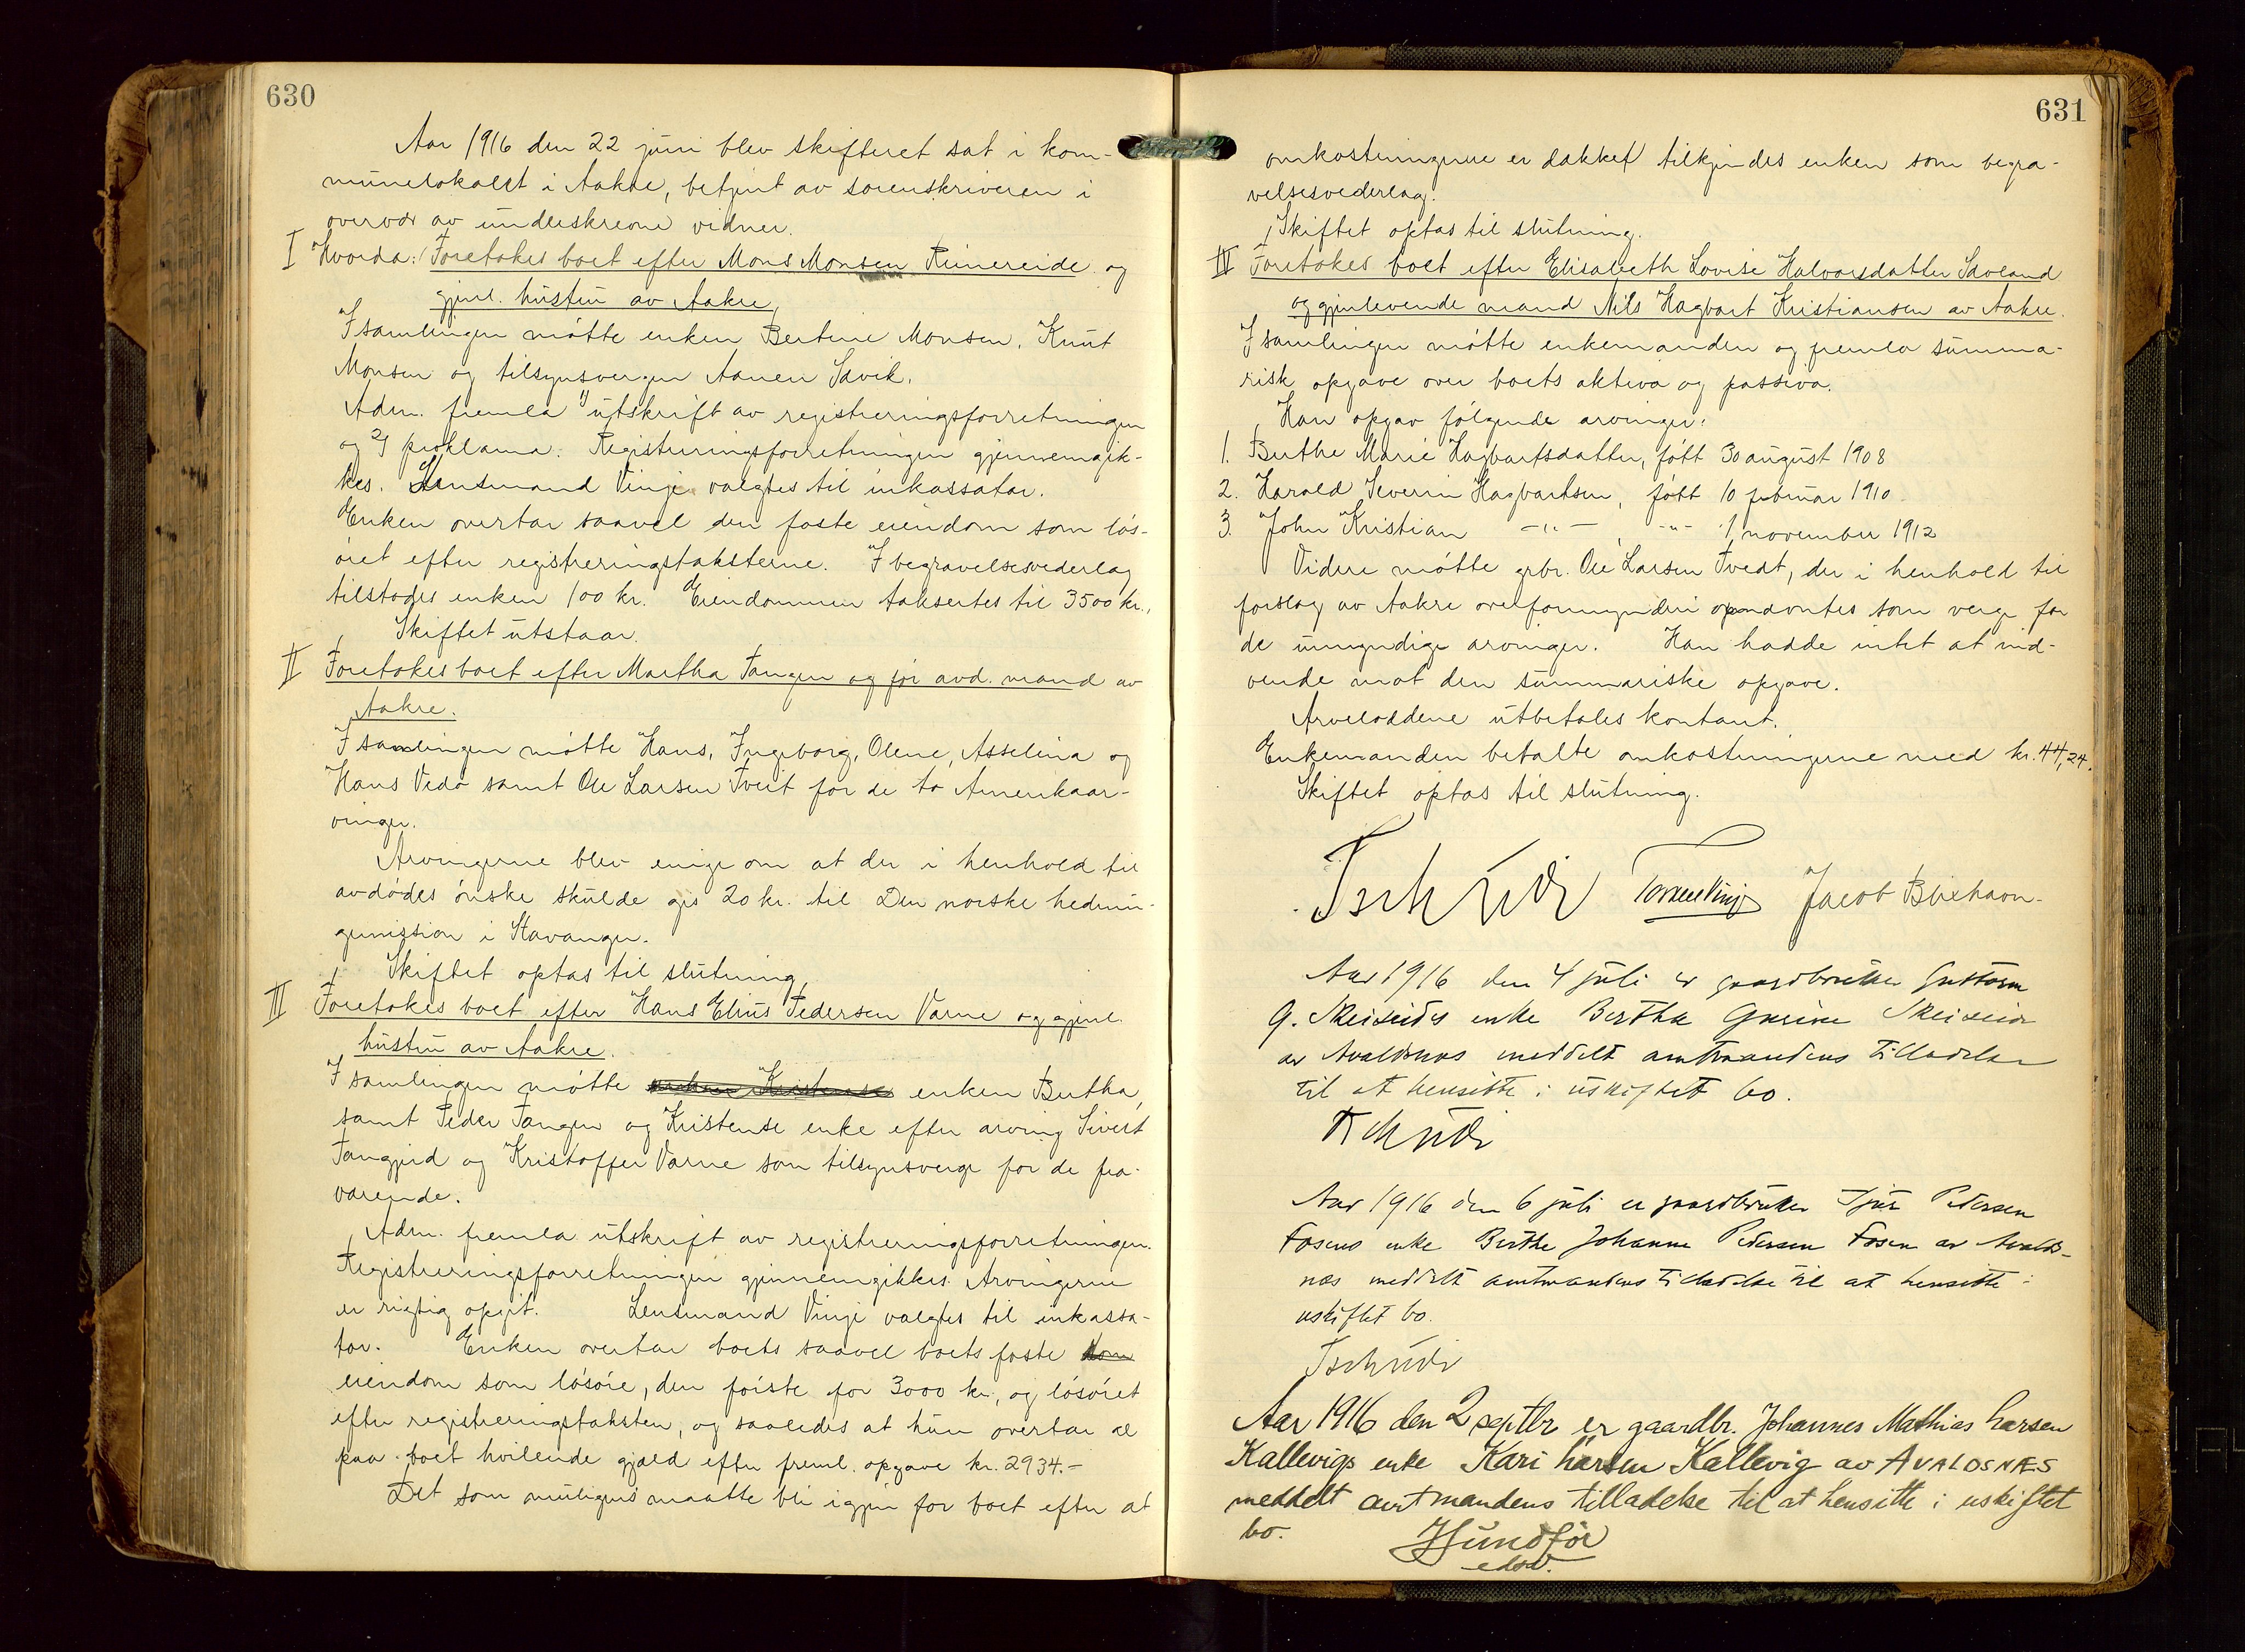 630
Aar 1916 den 22 juni blev skifteret sat i kom-
munelokalet i Aakre, betjent av sorenskriveren i
overvær av underskrevne vidner.
I Hvorda: Foretokes boet efter Mons Monsen Reinereide og
gjenl. hustru av Aakre,
I samlingen møtte enken Bertine Monsen, Knut
Monsen og tilsynsvergen Aanen Sævik.
Adm. fremla 1) utskrift av registreringsforretningen
og 2) proklama. Registreringsforretningen gjennemgik-
kes. Lensmand Vinje valgtes til inkassator.
Enken overtar saavel den faste eiendom som løs-
øret efter registreringstaksterne. I begravelsesvederlag
tilstodes enken 100 kr. Eiendommen taksertes til 3500 kr.,
Skiftet utstaar.
II Foretokes boet efter Martha Tangen og før avd. mand av
Aakre.
I samlingen møtte Hans, Ingeborg, Olene, Asselina og
Hans Vedø samt Ole Larsen Tveit for de to Amerikaar-
vinger.
Arvingerne blev enige om at der i henhold til
avdødes ønske skulde gis 20 kr. til Den norske hednin-
gemission i Stavanger.
Skiftet optas til slutning,
III Foretokes boet efter Hans Elius Pedersen Varne og gjenl.
hustru av Aakre.
I samlingen møtte enken Bertha,
samt Peder Tangen og Kristense enke efter arving Sivert
Tangjerd og Kristoffer Varne som tilsynsverge for de fra-
værende.
Adm. fremla utskrift av registreringsforretningen.
Registreringsforretningen gjennemgikkes. Arvingerne
er rigtig opgit. Lensmand Vinje valgtes til inkassa-
tor. Enken overtar boets saavel boets faste som
eiendom som løsøre, den første for 3000 kr., og løsøret
efter registreringstaksten, og saaledes at hun overtar al
paa boet hvilende gjæld efter freml. opgave kr. 2934.-
Det som muligens maatte bli igjen for boet efter at
631
omkostningerne er dækket tilkjendes enken som begra-
velsesvederlag.
Skiftet optas til slutning.
IV Foretokes boet efter Elisabeth Lovise Halvorsdatter Sævland
og gjenlevende mand Nils Hagbart Kristiansen av Aakre.
I samlingen møtte enkemanden og fremla summa-
risk opgave over boets aktiva og passiva.
Han opgav følgende arvinger:
1. Berthe Marie Hagbartsdatter, født 30 august 1908
2. Harald Severin Hagbartsen, født 10 februar 1910
3. John Kristian -"- , -"- 1 november 1912
Videre møtte grbr. Ole Larsen Tvedt, der i henhold til
forslag av Aakre overformynderi opnævntes som verge for
de umyndige arvinger. Han hadde intet at ind-
vende mot den summariske opgave.
Arveloddene utbetales kontant.
Enkemanden betalte omkostningerne med kr. 44,24.
Skiftet optas til slutning.
Tschudi Jacob Blixhavn.
Aar 1916 den 4 juli er gaardbruker Guttorm
G. Skeiseids enke Bertha Gurine Skeiseid
av Avaldsnes meddelt amtmandens tilladelse
til at hensitte i uskiftet bo.
Tschudi
Aar 1916 den 6 juli er gaardbruker Sjur Pedersen
Fosens enke Berthe Johanne Pedersen Fosen av Avalds-
næs meddelt amtmandens tilladelse til at hensitte i
uskiftet bo.
Tschudi
Aar 1916 den 2 septbr er gaardbr. Johannes Mathias Larsen
Kallevigs enke Kari Larsen Kallevig av AVALDSNÆS
meddelt amtmandens tilladelse til at hensitte i uskiftet
bo.
edsv.